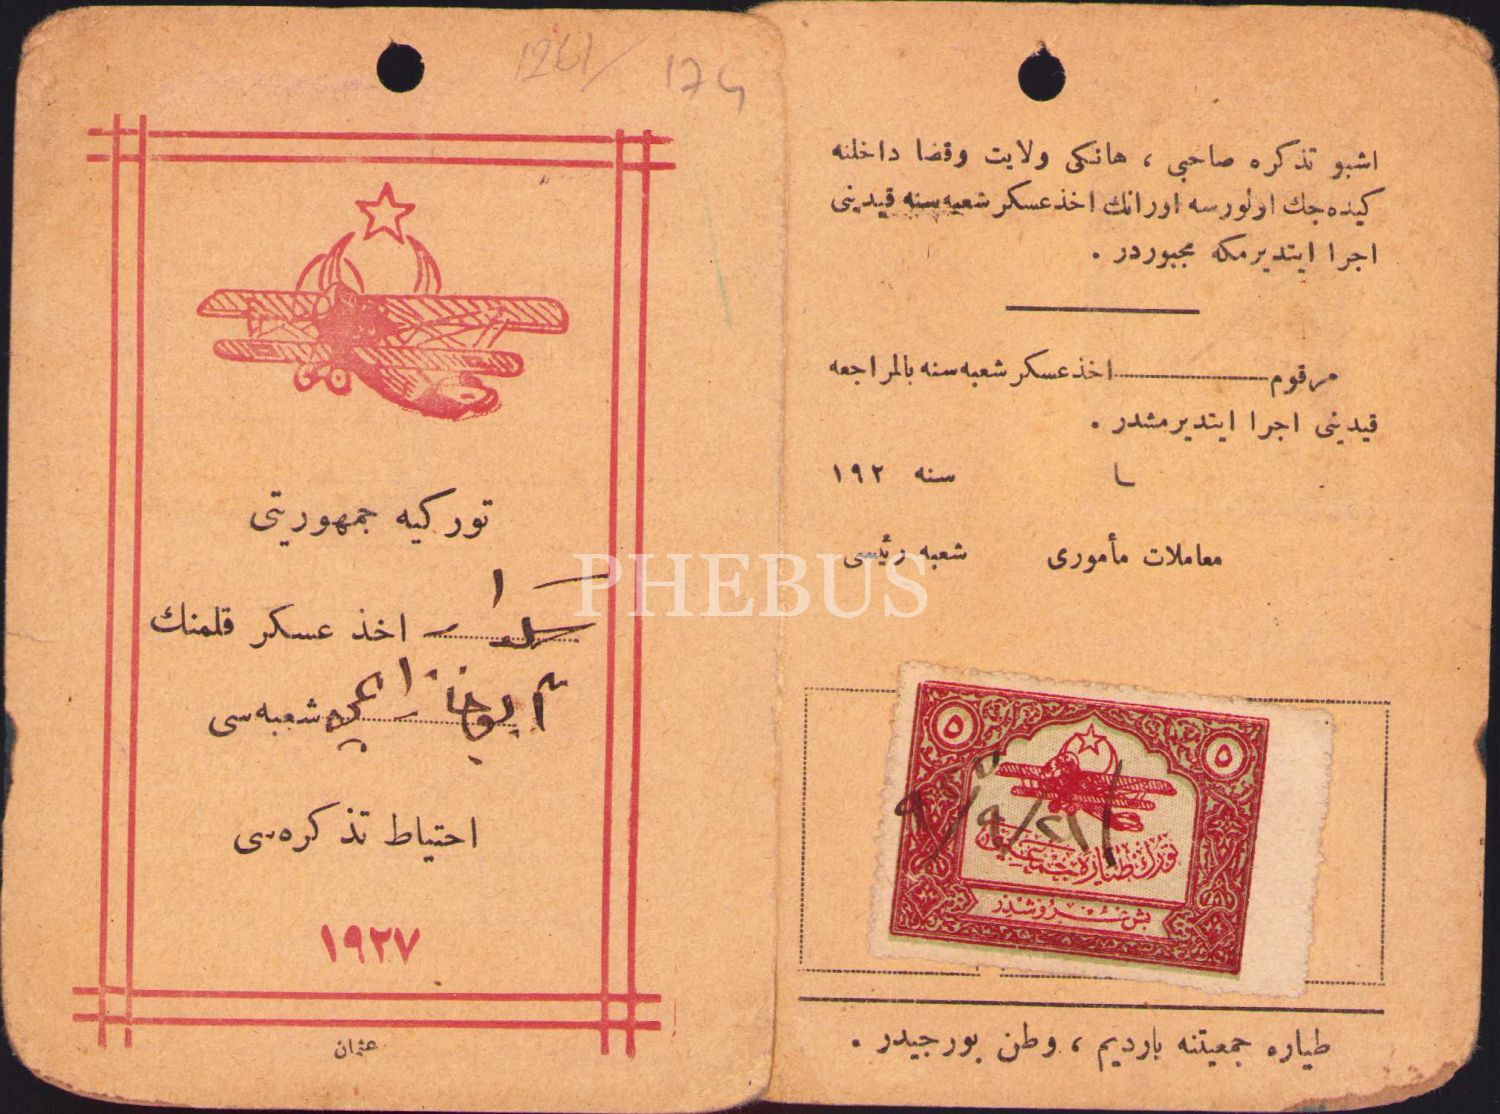 1261/ 174
توركيه جمهوريتى
اخذ عسكر قلمنك
شعبه‌سى
احتياط تذكره‌سى
١٩٢٧
عثمان
اشبو تذكره صاحبى ، هانكى ولايت وقضا داخلنه
كيده‌جك اولورسه اورانك اخذعسكر شعبه‌سنه قيدينى
اجرا ايتديرمكه مجبوردر .
مرقوم ........ اخذعسكر شعبه‌سنه بالمراجعه
قيدينى اجرا ايتديرمشدر .
سنه ١٩٢
معاملات مأمورى شعبه رئيسى
٥ ٥
تورك طياره جمعيتى
بش غروشدر
طياره جمعيتنه يارديم ، وطن بورجيدر .
PHEBUS